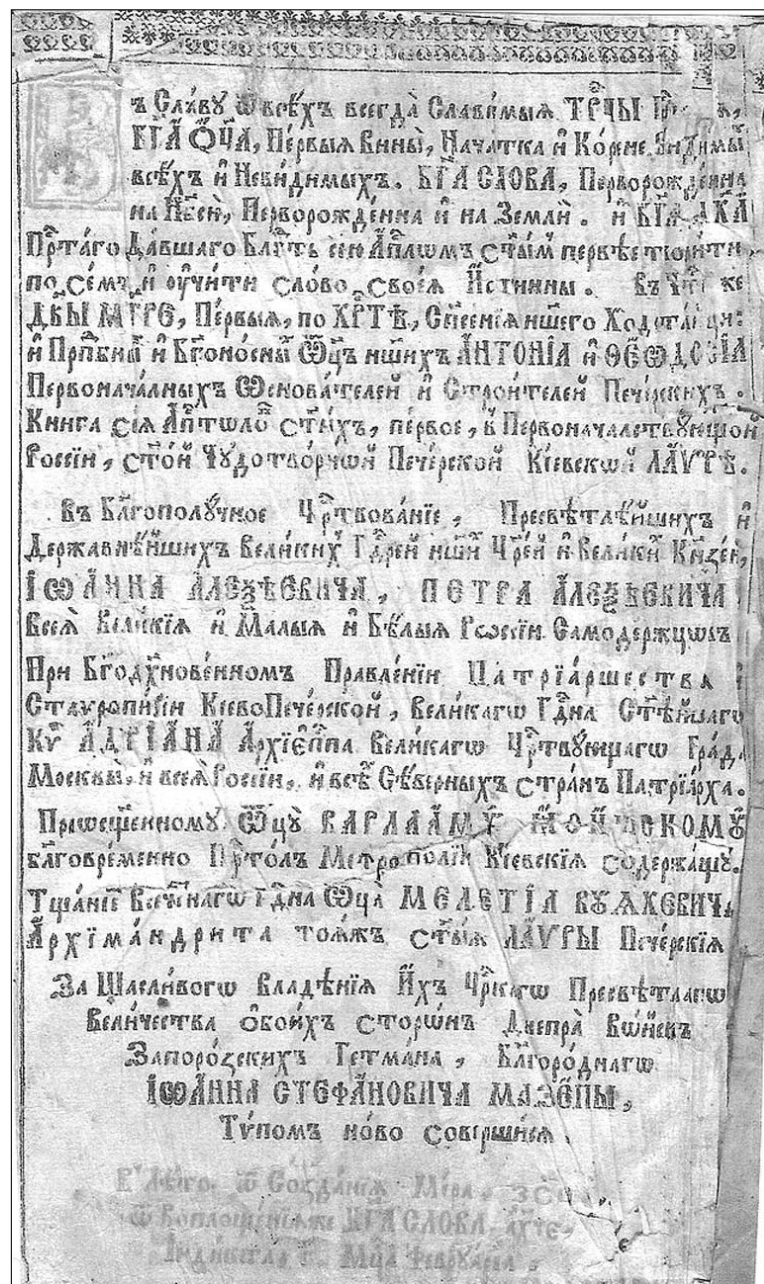 ъ Славꙋ ѿ всѣхъ всегда̀ Славимыѧ ТРⷪ҇ЦЫ
БГ҃А ѺЦ҃А, Пе́рвыѧ Вины̀, Начатка и҆ Ко́рене Видимы́
всѣ́хъ и҆ Неви́димыхъ. БГ҃А СЛОВА, Перворожде́нна
на Нб҃си, Перворожде́нна и҆ на Землѝ. и҆ БГ҃А ДХ҃А
Прⷭ҇та́го Да́вшаго Блгⷣть сѝю Апⷭ҇лѡмъ ст҃ы́мъ первѣе твори́ти
по се́мъ и҆ ᲂу҆чи́ти сло́во своеѧ̀ И҆́стинны. Въ Чтⷭ҇ь же
ДВ҃Ы МТ҃РЕ, Пе́рвыѧ, по ХРⷭ҇ТѢ, Сп҃се́нїѧ на́шегѡ Хода́таици:
и҆ Прпⷣбныⷯ и҆ Бг҃оно́сныⷯ Ѻц҃ъ на́шихъ А҆НТО́НІА и҆ ѲЕѠДО́СІА
Первонача́лныхъ Ѡснова́телей и҆ Строи́телей Пече́рскихъ.
Книга сїѧ̀ Апⷭ҇тѡлѡⷡ҇ ст҃ы́хъ, пе́рвое, в̾ Первонача́лствꙋющой
Росси́и, ст҃о́й Чꙋдотво́рной Пече́рской Кі́евской ЛА́ѴРѢ.
Въ Благополꙋ́чное Црⷭ҇твова́нїе, Пресвѣтлѣ́йшихъ и҆
Держа́внѣйшихъ Вели́кихъ Гдⷭ҇рей на́шиⷯ Цр҃е́й и҆ Вели́киⷯ Кнѧзе́й,
ІѠА́ННА АЛЕѮѢ́ЕВИЧА, ПЕТРА АЛЕѮѢ́ЕВИЧА
Всеѧ̀ Вели́кїѧ и҆ Ма́лыѧ и҆ Бѣ́лыѧ Рѡсси́и Самоде́ржцѡвъ
При Бг҃одꙋхнове́нномъ Правле́нїи Патрїа́ршества
Стаѵропи́гїи КиевоПече́рской, Вели́кагѡ Гдⷭ҇на Ст҃ѣ́йшагѡ
Кѵⷬ҇ А҆ДРІА́НА А҆рхїепⷭ҇па Вели́кагѡ Црⷭ҇твꙋющагѡ Гра́да
Москвы̀, и҆ всеѧ̀ Росси́и, и҆ всѣⷯ Сѣ́верныхъ стра́нъ Патрїа́рха.
Преѡсщ҃енномꙋ Ѻц҃ꙋ̀ ВАРЛАА́МꙊ ꙖСИ́НСКОМꙊ
благовре́менно Прⷭ҇то́лъ Митропо́лїи Кі́евскїѧ содержа́щꙋ.
Тща́нїеⷨ Всечⷭ҇тнагѡ Гдⷭ҇на Ѻц҃а̀ МЕЛЕ́ТІА ВꙊѦХЕ́ВИЧА
А҆рхїма́ндрита тоѧ́жъ ст҃ы́ѧ ЛА́ѴРЫ Пече́рскїѧ
За Щасли́вогѡ Владѣ́нїѧ И҆́хъ Црⷭ҇кагѡ Пресвѣ́тлагѡ
Вели́чества ѻ҆бои́хъ сторѡ́нъ Днепра̀ Во́йскъ
Запоро́зскихъ Ге́тмана, Благоро́днагѡ
ІѠА́ННА СТЕФА́НОВИЧА МАЗЕ́ПЫ,
Тѵ́помъ но́во соверши́сѧ.
В̾ лѣ́то ѿ Созда́нїѧ Ми́ра
ѿ Воплоще́нїѧже БГ҃А СЛОВА, ахч҃е,
І҆ндикта Мцⷭ҇а Феврꙋа́рїѧ